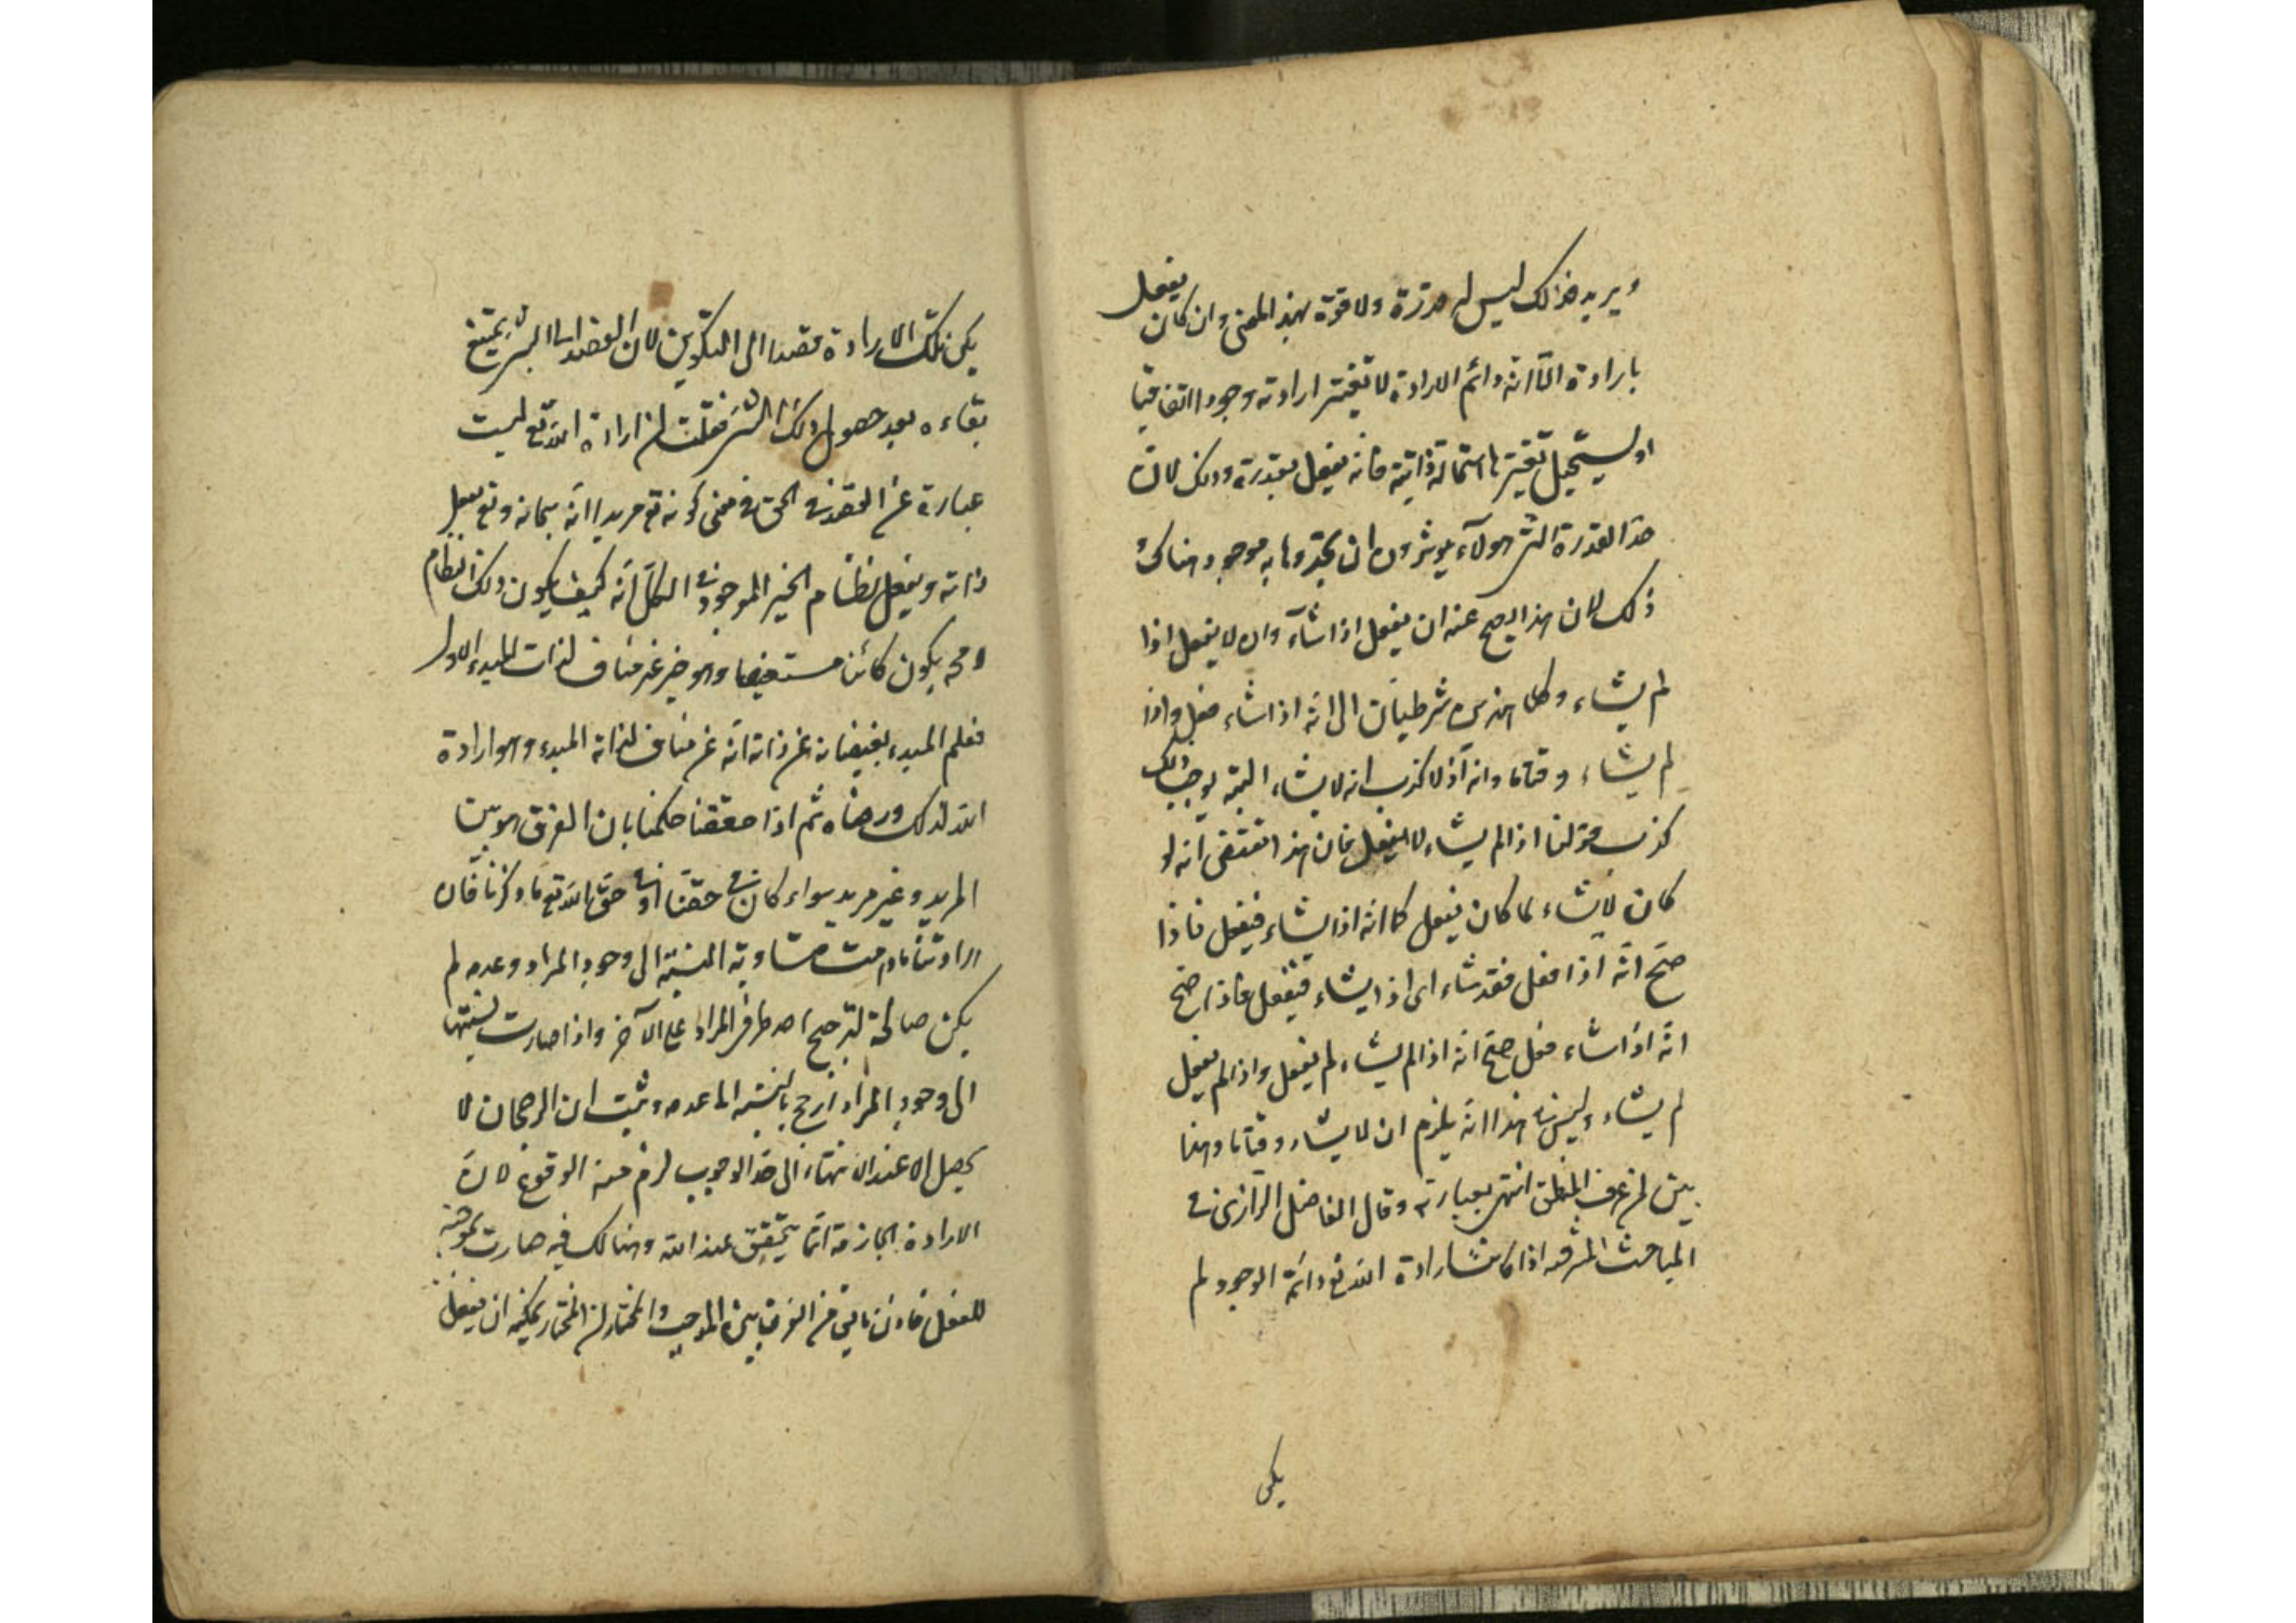 ويريد فذالك ليس له قدرة ولا قوة بهذا المعنى وان كان يفعل
بارادة الا انه دائم الارادة لا تتغير ارادته وجودا اتفاقيا
او يستحيل تغيرها استحالة ذاتية فانه يفعل بقدرة وذلك لان
حد القدرة التى هولاء يوثرون ان يحدوها به موجود هناك و
ذلك لان هذا يصح عنه ان يفعل اذا شآء وان لا يفعل اذا
لم يشاء وكلا هذين شرطيان الى انه اذا شاء فعل واذا
لم يشاء وقتاما وانه اذ لا كذب انه لا يشاء البتة يوجب ذلك
كذب قولنا اذا لم يشاء لا يفعل فان هذا تقتضى انه لو
كان لا يشاء لما كان يفعل كما انه اذا يشاء فيفعل فاذا
صح انه اذا فعل فقد شاء اى اذا يشاء فيفعل فاذا صح
انه اذا شاء فعل صح انه اذا لم يشاء لم يفعل واذا لم يفعل
لم يشاء وليس فى هذا انه يلزم ان لا يشاء وقتاما وهذا
بين لمن عرف المنطق انتهى بعبارته وقال الفاضل الرازى فى
المباحث المشرقيه اذا كانت ارادة الله تع دائمة الوجود لم
يكن
يكن تلك الارادة قصدا الى التكوين لان القصد الى الشئ يمتنع
بقاءه بعد حصول ذلك الشئ فقلت ان ارادة الله تع ليست
عبارة عن القصد فى الحق فى معنى كونه تع مريدا انه سبحانه وتع يعقل
ذاته ويعقل نظام الخير الموجود فى الكل انه كيف يكون ذلك النظام
و يكون كائنا مستفيضا وهو خير غير مناف لذات المبدء الاول
فعلم المبدء بفيضانه عن ذاته انه غير مناف لذاته المبدء وهو ارادة
الله لذلك ورضاه ثم اذا حققنا حكمنا بان الفرق هو بين
المريد وغير مريد سواء كان فى حقنا او فى حق الله تع ما ذكرنا فان
ارادتنا مادامت متساوية النسبة الى وجود المراد وعدمه لم
يكن صالحة لترجيح احد طرفى المراد على الآخر واذا صارت نسبتها
الى وجود المراد ارجح بالنسبه الى عدمه وثبت ان الرجحان لا
يحصل الا عند الانتهاء الى حد الوجوب لزم منه الوقوع لان
الارادة الجازمة انما يتحقق عند الله وهنالك فيه صارت موجبة
للفعل فاذن ما بقى من الفرق بين الموجب والمختار ان المختار يمكنه ان يفعل